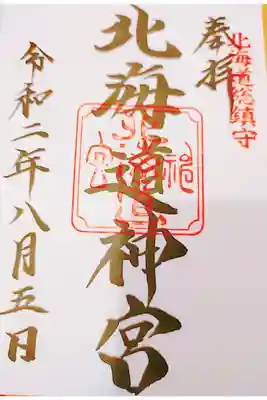 北海道総鎮守
奉拝
北海道神宮
令和二年八月五日